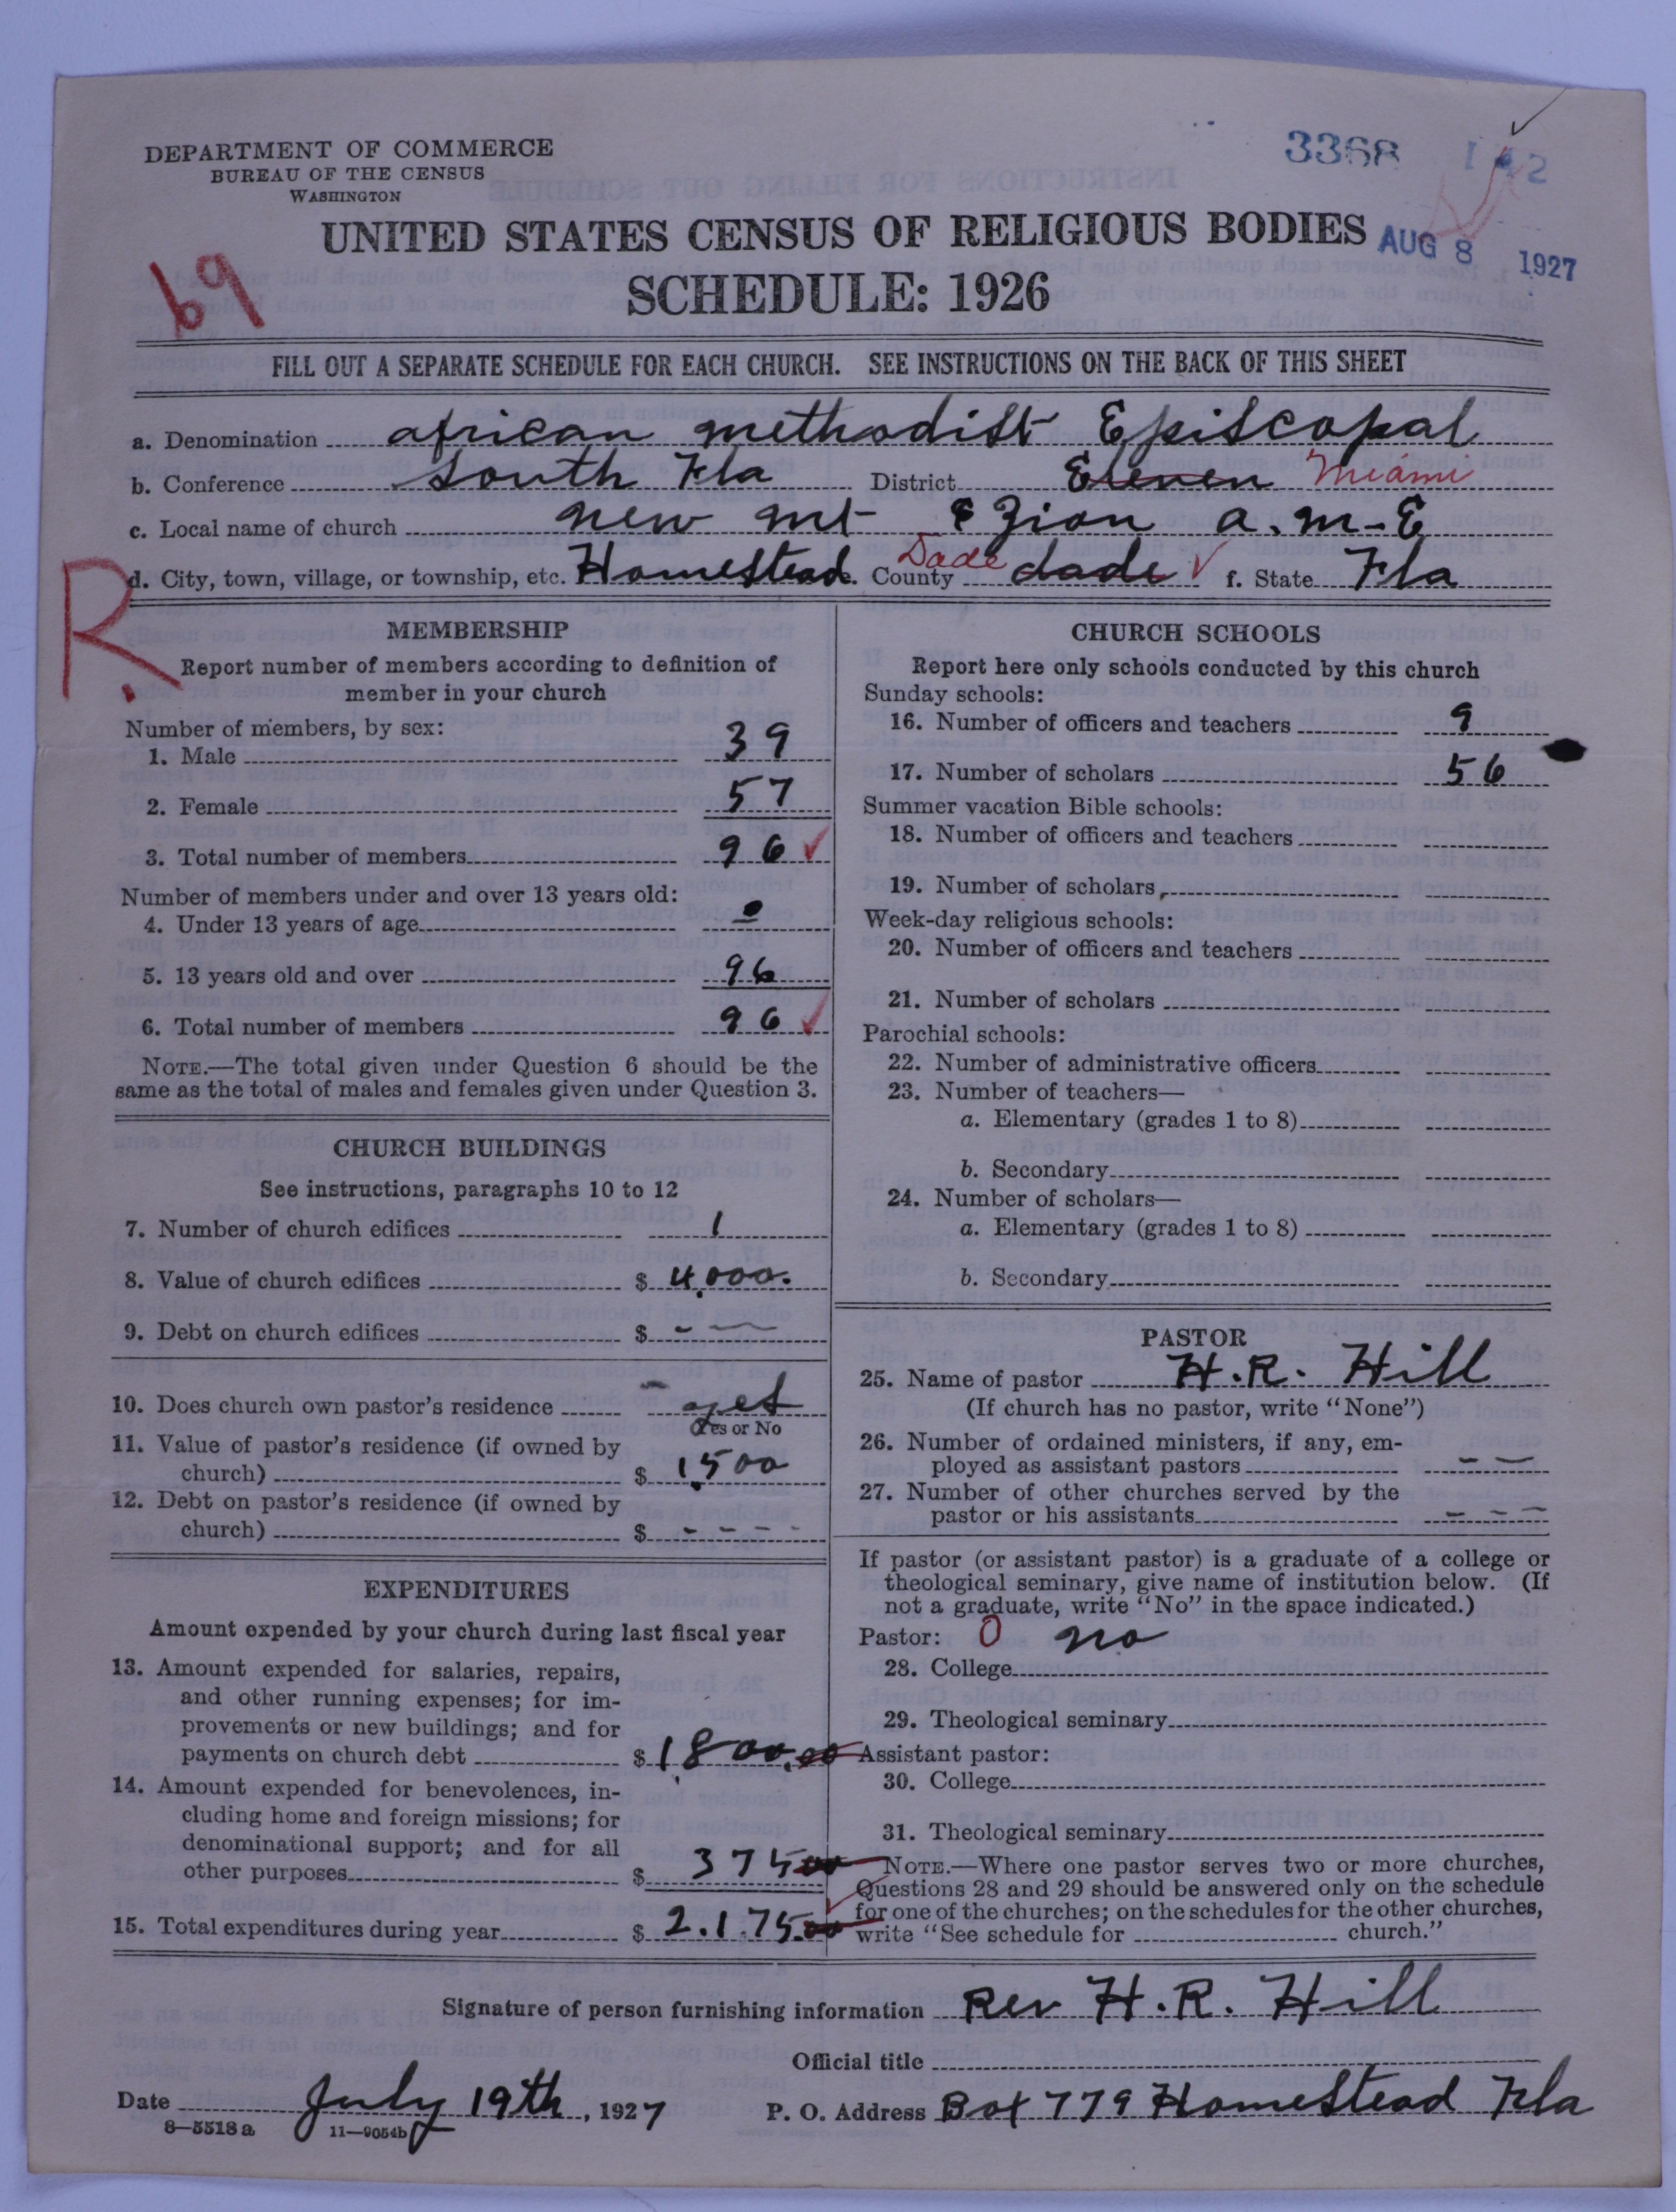 DEPARTMENT OF COMMERCE
BUREAU OF THE CENSUS
WASHINGTON
3368
UNITED STATES CENSUS OF RELIGIOUS BODIES
AUG 8 1927
69
SCHEDULE: 1926
FILL OUT A SEPARATE SCHEDULE FOR EACH CHURCH. SEE INSTRUCTIONS ON THE BACK OF THIS SHEET
a. Denomination african methodist Episcopal
b. Conference South Fla District Eleven Miami
c. Local name of church new mt Zion a.m-E
R. d. City, town, village, or township, etc. Homestead e. County Dade dade f. State Fla
MEMBERSHIP
Report number of members according to definition of
member in your church
Number of members, by sex:
1. Male 39
2. Female 57
3. Total number of members 96 ✓
Number of members under and over 13 years old:
4. Under 13 years of age
5. 13 years old and over 96
6. Total number of members 96 ✓
NOTE.—The total given under Question 6 should be the
same as the total of males and females given under Question 3.
CHURCH BUILDINGS
See instructions, paragraphs 10 to 12
7. Number of church edifices 1
8. Value of church edifices $ 4,000.
9. Debt on church edifices $ - —
10. Does church own pastor's residence yes
Yes or No
11. Value of pastor's residence (if owned by
church) $ 1,500
12. Debt on pastor's residence (if owned by
church) $ - - - -
EXPENDITURES
Amount expended by your church during last fiscal year
13. Amount expended for salaries, repairs,
and other running expenses; for im-
provements or new buildings; and for
payments on church debt $ 1,800.00
14. Amount expended for benevolences, in-
cluding home and foreign missions; for
denominational support; and for all
other purposes $ 375 00
15. Total expenditures during year $ 2.175.00
CHURCH SCHOOLS
Report here only schools conducted by this church
Sunday schools:
16. Number of officers and teachers 9
17. Number of scholars 56
Summer vacation Bible schools:
18. Number of officers and teachers
19. Number of scholars
Week-day religious schools:
20. Number of officers and teachers
21. Number of scholars
Parochial schools:
22. Number of administrative officers
23. Number of teachers—
a. Elementary (grades 1 to 8)
b. Secondary
24. Number of scholars—
a. Elementary (grades 1 to 8)
b. Secondary
PASTOR
25. Name of pastor H.R. Hill
(If church has no pastor, write "None")
26. Number of ordained ministers, if any, em-
ployed as assistant pastors - —
27. Number of other churches served by the
pastor or his assistants - - —
If pastor (or assistant pastor) is a graduate of a college or
theological seminary, give name of institution below. (If
not a graduate, write "No" in the space indicated.)
Pastor: 0 no
28. College
29. Theological seminary
Assistant pastor:
30. College
31. Theological seminary
NOTE.—Where one pastor serves two or more churches,
Questions 28 and 29 should be answered only on the schedule
for one of the churches; on the schedules for the other churches,
write "See schedule for church."
Signature of person furnishing information Rev H.R. Hill
Official title
Date July 19th, 1927 P. O. Address Box 779 Homestead Fla
8—5518 a 11—9054b